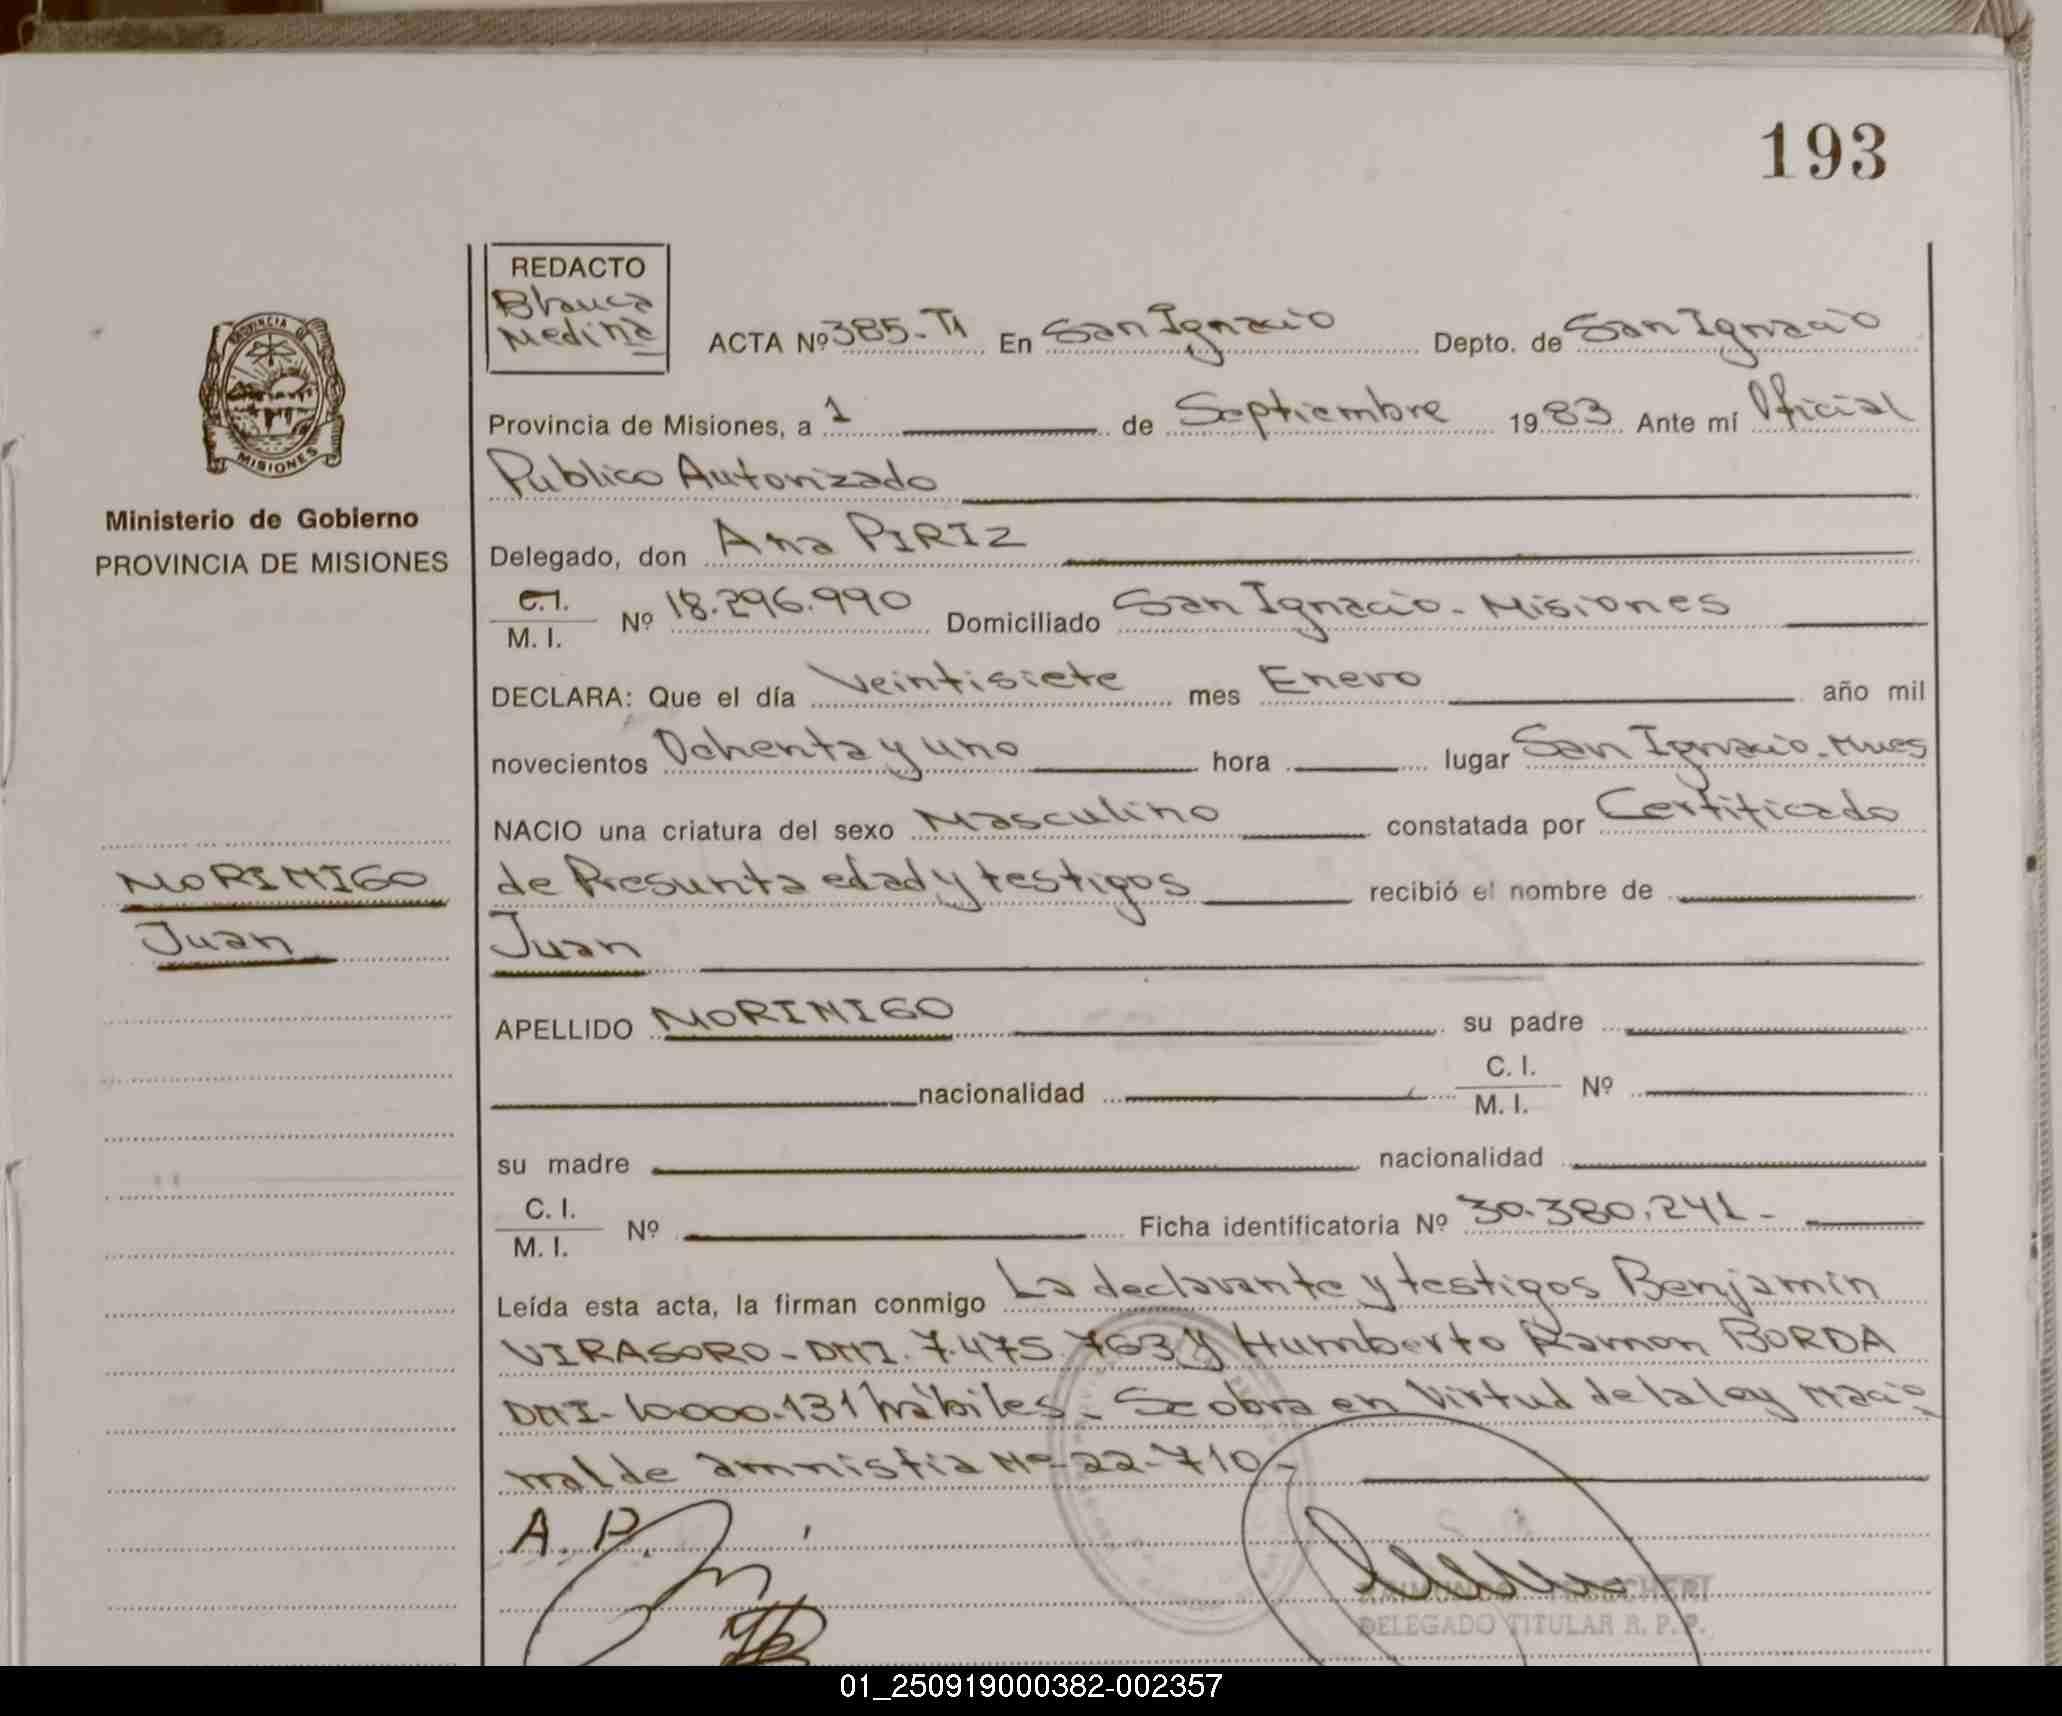 193
REDACTO
Blanca
Medina
ACTA Nº 385-TI En San Ignacio Depto. de San Ignacio
Provincia de Misiones, a 1 de Septiembre 1983 Ante mí Oficial
Publico Autorizado
PROVINCIA DE
MISIONES
Ministerio de Gobierno
PROVINCIA DE MISIONES
Delegado, don Ana PIRIZ
C.I.
M. I. Nº 18.296.990 Domiciliado San Ignacio. Misiones
DECLARA: Que el día Veintisiete mes Enero año mil
novecientos Ochenta y uno hora lugar San Ignacio. Mnes
NACIO una criatura del sexo Masculino constatada por Certificado
de Presunta edad y testigos recibió el nombre de
Juan
APELLIDO MORINIGO su padre
nacionalidad C. I.
M. I. Nº
su madre nacionalidad
C. I.
M. I. Nº Ficha identificatoria Nº 30.380.241-
Leída esta acta, la firman conmigo La declarante y testigos Benjamin
VIRASORO-DNI. 7.475.763 y Humberto Ramon BORDA
DNI-10.000.131 hábiles. Se obra en Virtud de la ley Nacio
nal de amnistia Nº-22-710-
A. P.
DELEGADO TITULAR R. P. P.
MORINIGO
Juan
01_250919000382-002357